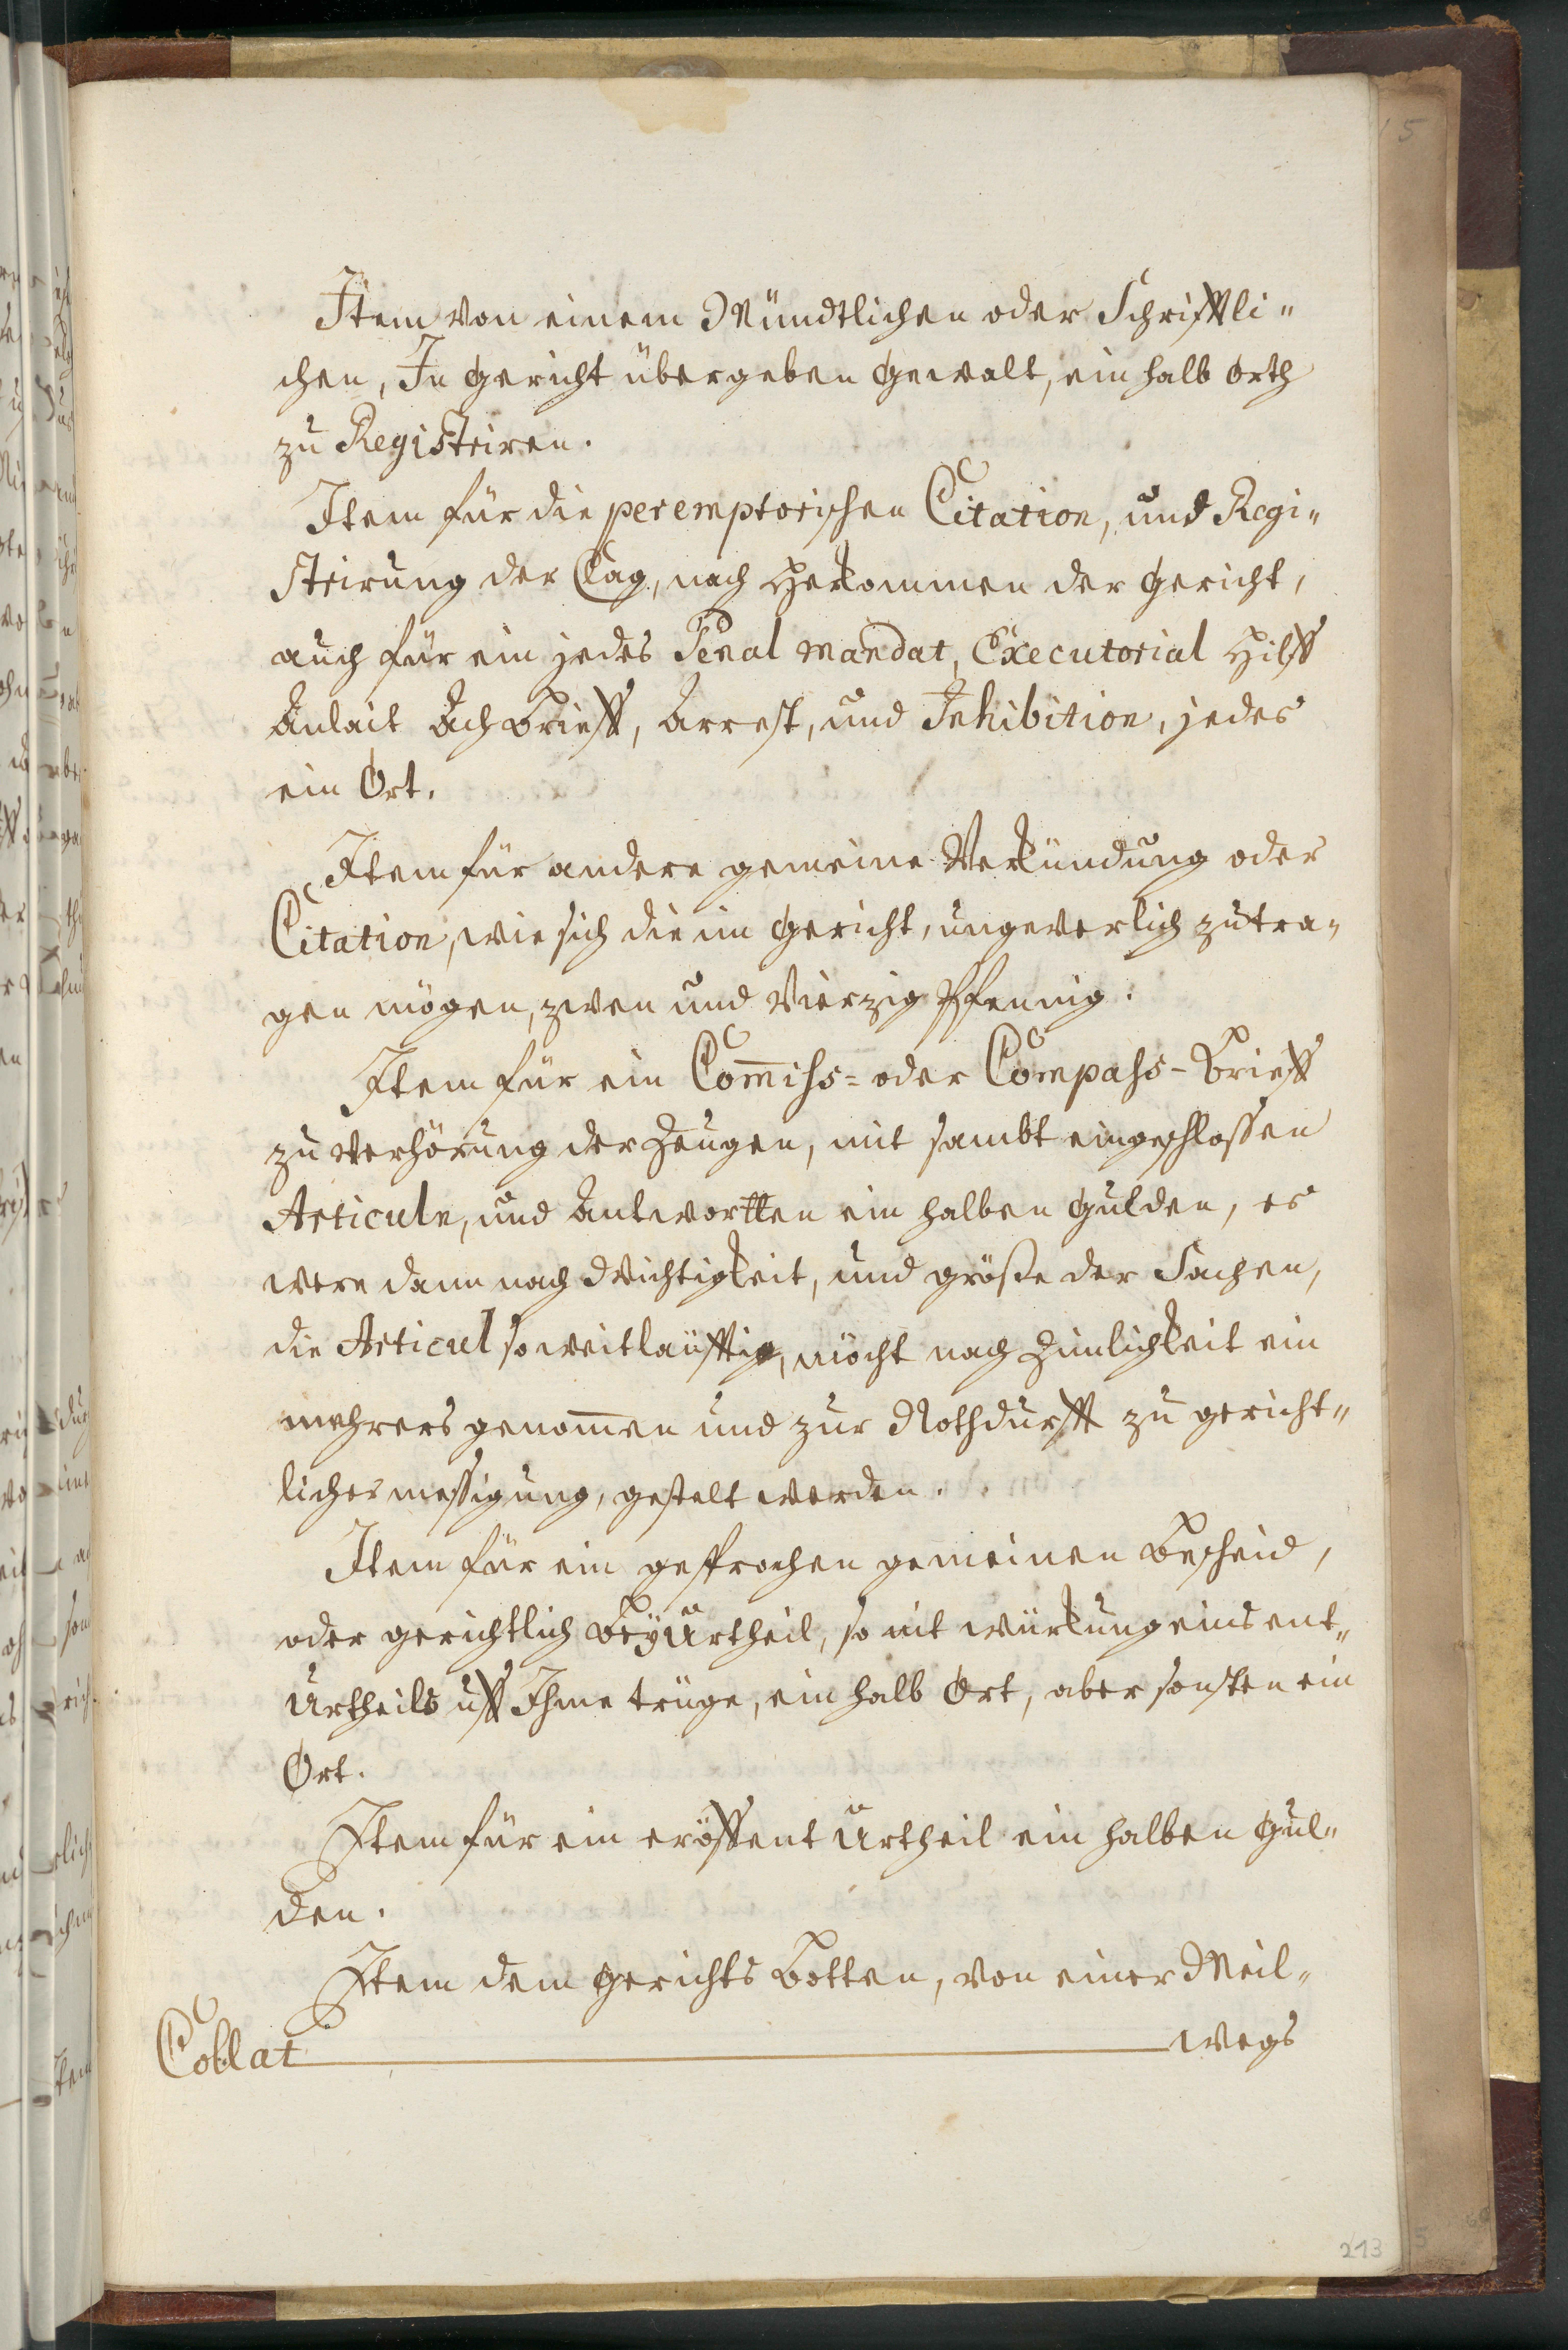 Item von einem Mündtlichen oder Schrifftli„
chen, In Gericht übergeben Gewalt, ein halb Orth
zu Registriren.
Item für die peremptorischen Citation, und Regi„
strirung der Clag, nach Herkommen der Gericht,
auch für ein jedes Penal Mandat, Executorial Hilff
Anlait Ach Brieff, Arrest, und Inhibition, jedes
ein Ort.
Item für andere gemeine Verkündung oder
Citation, wie sich die im Gericht, ungeverlich zutra„
gen mögen, zwen und Vierzig Pfennig.
Item für ein Com̅iss= oder Compass-Brieff
zu Verhörung der Zeugen, mit sambt eingeschlossen
Articuln, und Antwortten ein halben Gulden, es
were dann nach Wichtigkeit, und größe der Sachen,
die Articul so weitläufftig, möcht nach Zimlichkeit ein
mehrers genom̅en und zur Nothdurfft zu gericht„
licher messigung, gestelt werden.
Item für ein gesprochen gemeinen Bescheid,
oder gerichtlich Beÿurtheil, so nit würkung eins ent„
Urtheils uff Ihme trüge, ein halb Ort, aber sonsten ein
Ort.
Item für ein eröffent Urtheil ein halben Gul„
den.
Item dem Gerichts Botten, von einer Meil„
Collat wegs
213